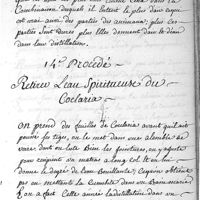 Combinaison desquels il entrent le plus dans le
est vrai aussi des parties des animaux; plus ces
parties sont dures plus elles donnent dans le
dans leur distillation.
14.e Procédé
Retirer L'eau Spiritueuse du
Coclaria
On prend des feuilles de Coclaria avant qu'il ait
poussé sa tige, on le met dans une alembic de
dont on lute bien les jointures, on y ajuste
pour recipient un matras a long col et on lui
donne le degré de l'eau bouillante;
en mettant la Cucurbite dans un Bain-marie
on a fait cette année la distillation dans un